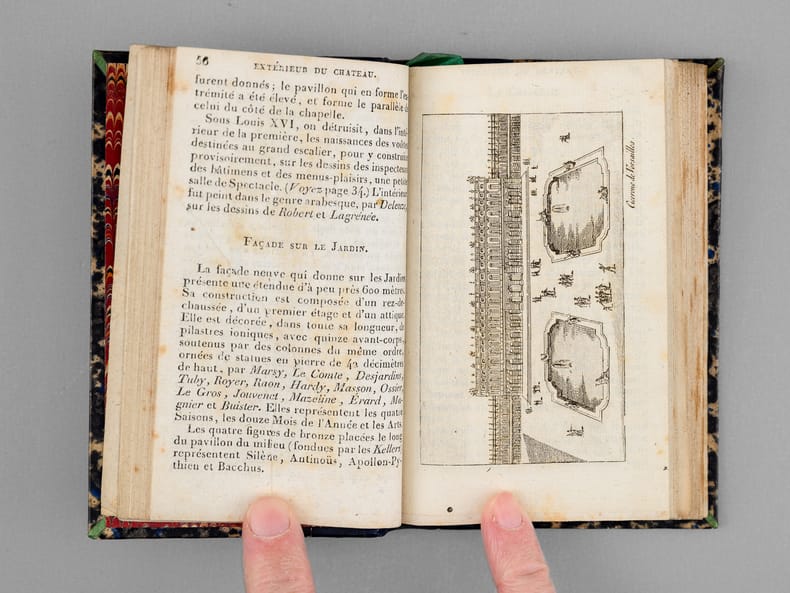 56
EXTÉRIEUR DU CHATEAU.
furent donnés; le pavillon qui en forme l'ex
trémité a été élevé, et forme le parallèle d
celui du côté de la chapelle.
Sous Louis XVI, on détruisit, dans l'inté
rieur de la première, les naissances des voût
destinées au grand escalier, pour y construi
provisoirement, sur les dessins des inspecteu
des bâtimens et des menus-plaisirs, une petit
salle de Spectacle. (Voyez page 34.) L'intérieu
fut peint dans le genre arabesque, par Deleuze,
sur les dessins de Robert et Lagrénée.
FAÇADE SUR LE JARDIN.
La façade neuve qui donne sur les Jardins
présente une étendue d'à peu près 600 mètres.
Sa construction est composée d'un rez-de-
chaussée, d'un premier étage et d'un attique.
Elle est décorée, dans toute sa longueur, de
pilastres ioniques, avec quinze avant-corps,
soutenus par des colonnes du même ordre,
ornées de statues en pierre de 42 décimètres
de haut, par Marsy, Le Comte, Desjardins,
Tuby, Royer, Raon, Hardy, Masson, Ossier,
Le Gros, Jouvenet, Mazeline, Erard, Ma-
gnier et Buister. Elles représentent les quatre
Saisons, les douze Mois de l'Année et les Arts.
Les quatre figures de bronze placées le long
du pavillon du milieu (fondues par les Kellers)
représentent Silène, Antinoüs, Apollon-Py-
thien et Bacchus.
de Versailles